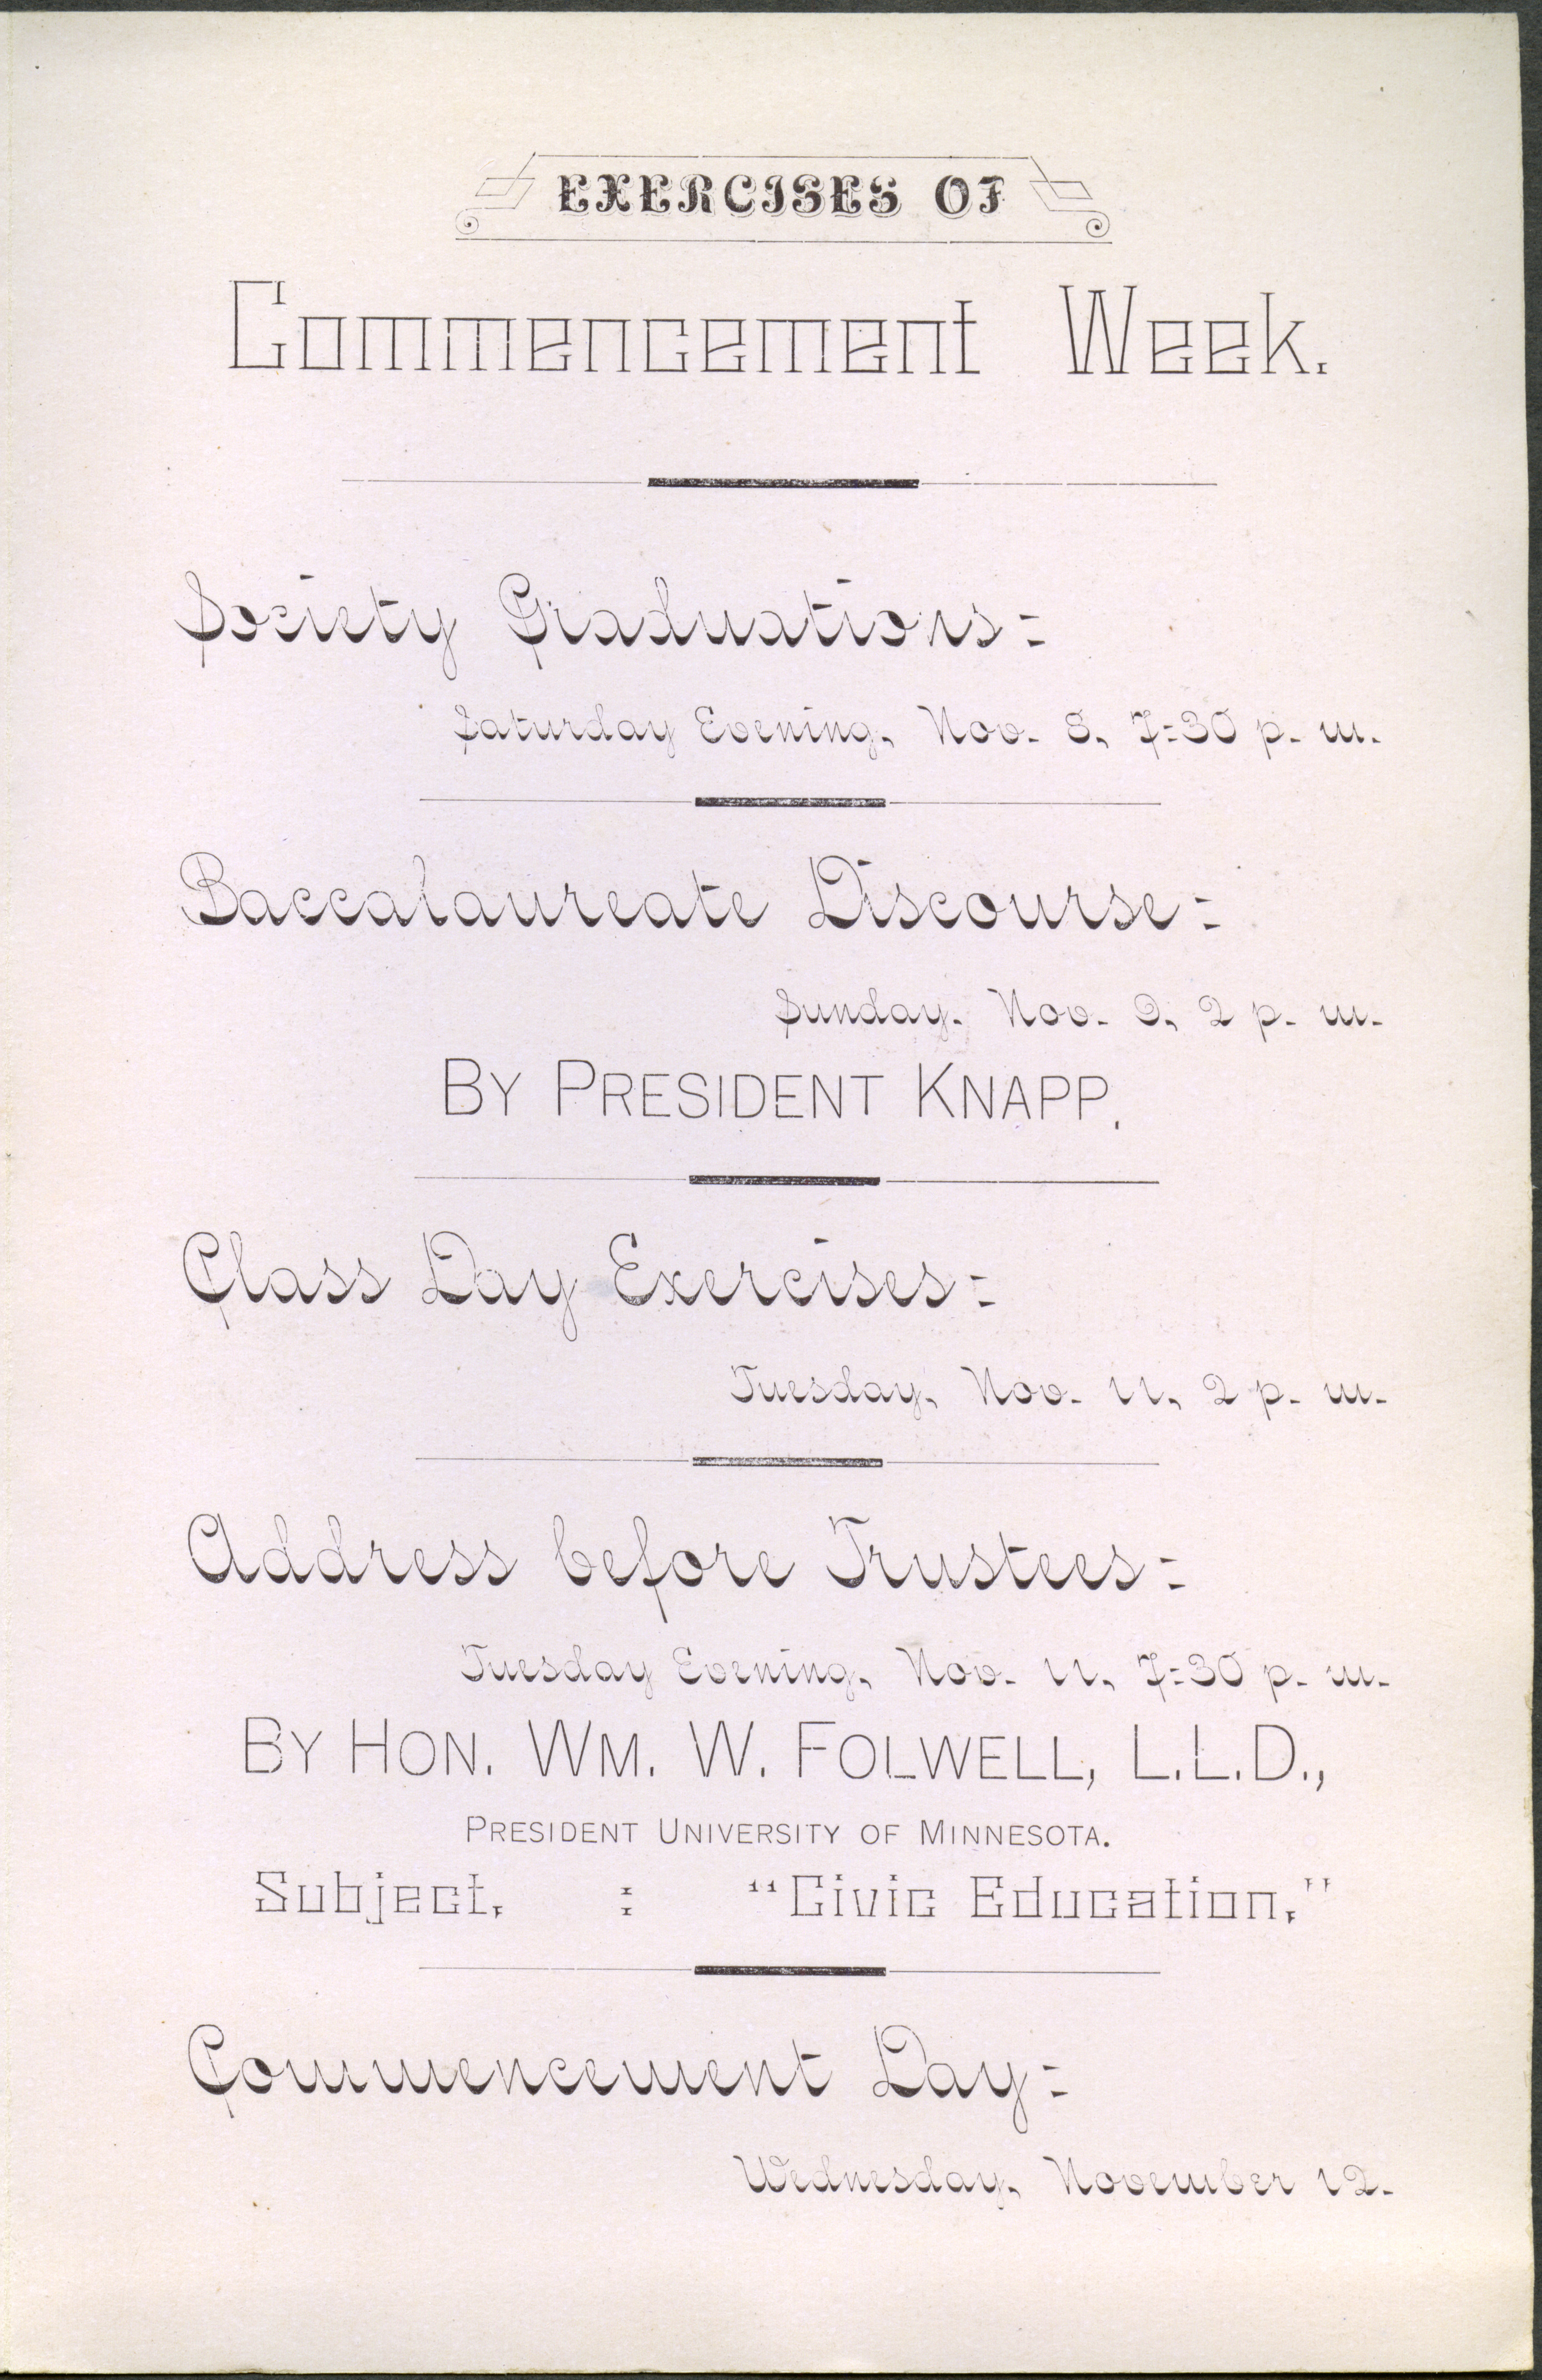 EXERCISES OF
Commencement Week.
Society Graduations:
Saturday Evening, Nov. 8, 7:30 p. m.
Baccalaureate Discourse:
Sunday, Nov. 9, 2 p. m.
BY PRESIDENT KNAPP.
Class Day Exercises:
Tuesday, Nov. 11, 2 p. m.
Address before Trustees:
Tuesday Evening, Nov. 11, 7:30 p. m.
BY HON. WM. W. FOLWELL, L.L.D.,
PRESIDENT UNIVERSITY OF MINNESOTA.
Subject, : "Civic Education,"
Commencement Day:
Wednesday, November 12.